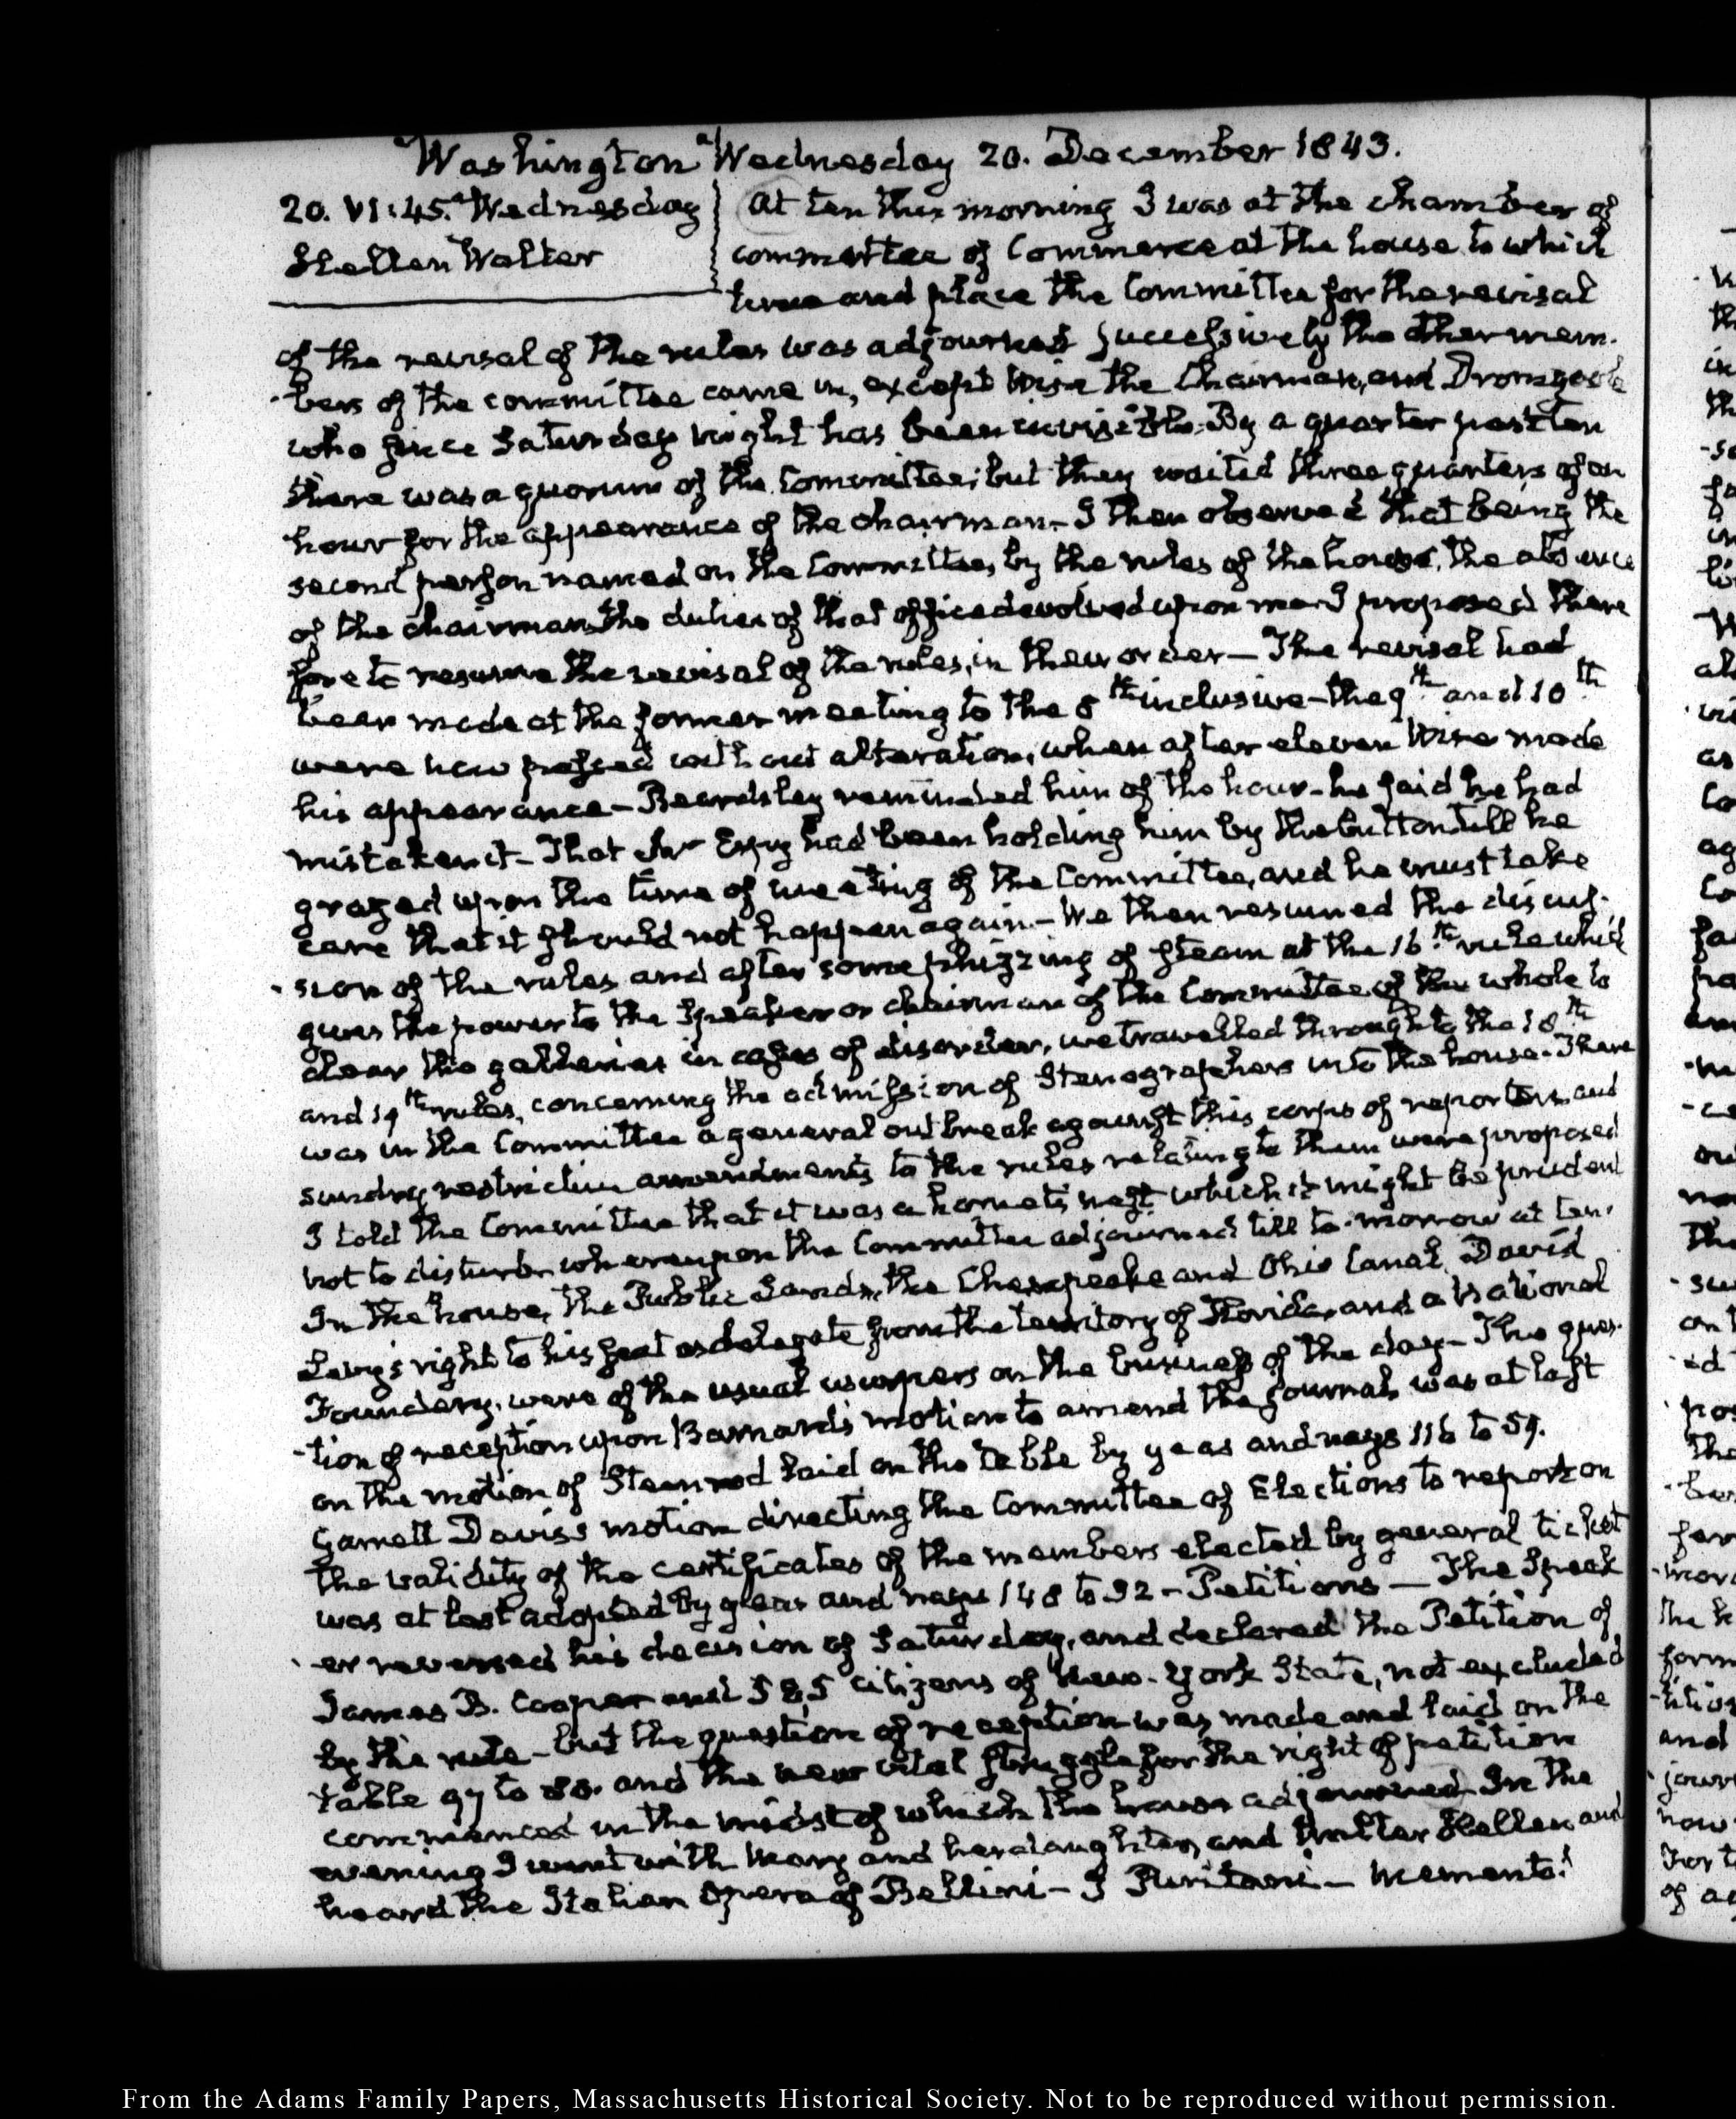 Washington Wednesday 20. December 1843.
20. VI:45. Wednesday
Hellen Walter
At ten this morning I was at the chamber of
committee of Commerce at the house to which
time and place the Committee for the revisal
of the revisal of the rules was adjourned successively the other mem-
-bers of the committee came in, except Wise the Chairman, and Dromgoole
who since Saturday night has been invisible. By a quarter past ten
there was a quorum of the Committee; but they waited three quarters of an
hour for the appearance of the chairman— I then observed that being the
second person named on the Committee, by the rules of the house, the absence
of the chairman the duties of that office devolved upon me. I proposed there
fore to resume the revisal of the rules, in their order— The revisal had
been made at the former meeting to the 8th inclusive— the 9th and 10th
were now passed without alteration, when after eleven Wise made
his appearance— Beardsley reminded him of the hour— he said he had
mistaken it— That Mr Espy had been holding him by the button till he
grazed upon the time of meeting of the Committee, and he must take
care that it should not happen again— We then resumed the discus-
-sion of the rules and after some phizzing of steam at the 16th rule which
gives the power to the Speaker or chairman of the Committee of the whole to
clear the galleries in cases of disorder, we travelled through to the 18th
and 19th rules, concerning the admission of Stenographers into the house. There
was in the Committee a general outbreak against this corps of reporters, and
sundry restrictive amendments to the rules relating to them were proposed
I told the Committee that it was a hornets nest which it might be prudent
not to disturb whereupon the Committee adjourned till to-morrow at ten.
In the house, the Public Lands, the Chesapeake and Ohio Canal, David
Levy's right to his seat as delegate from the territory of Florida, and a National
Foundery, were of the usual usurpers on the business of the day— The ques-
-tion of reception upon Barnard's motion to amend the journal, was at last
on the motion of Steenrod laid on the table by yeas and nays 116 to 59.
Garrett Davis's motion directing the Committee of Elections to report on
the validity of the certificates of the members elected by general ticket
was at last adopted by yeas and nays 148 to 32— Petitions— The Speak
-er reversed his decision of Saturday, and declared the Petition of
James B. Cooper and 585 citizens of New-York State, not excluded
by the rule— but the question of reception was made and laid on the
table 97 to 80. and the new vital struggle for the right of petition
commenced in the midst of which the house adjourned In the
evening I went with Mary and her daughter, and Walter Hellen and
heard the Italian Opera of Bellini— I Puritani— Memento!
From the Adams Family Papers, Massachusetts Historical Society. Not to be reproduced without permission.